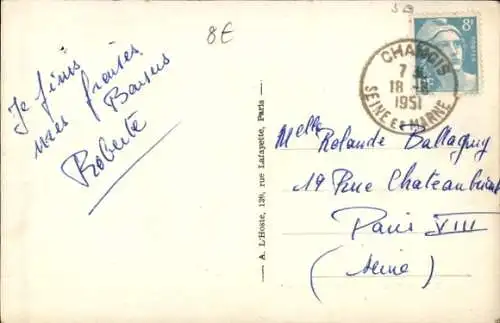 8€
Je finis
mes
Baisers
Roberte
A. L'Hoste, 126, rue Lafayette, Paris
8F
CHAMIGNY
7 H
18 -8
1951
SEINE ET MARNE
Melle Rolande Ballaguy
19 Rue Chateaubriand
Paris VIII
(Seine)